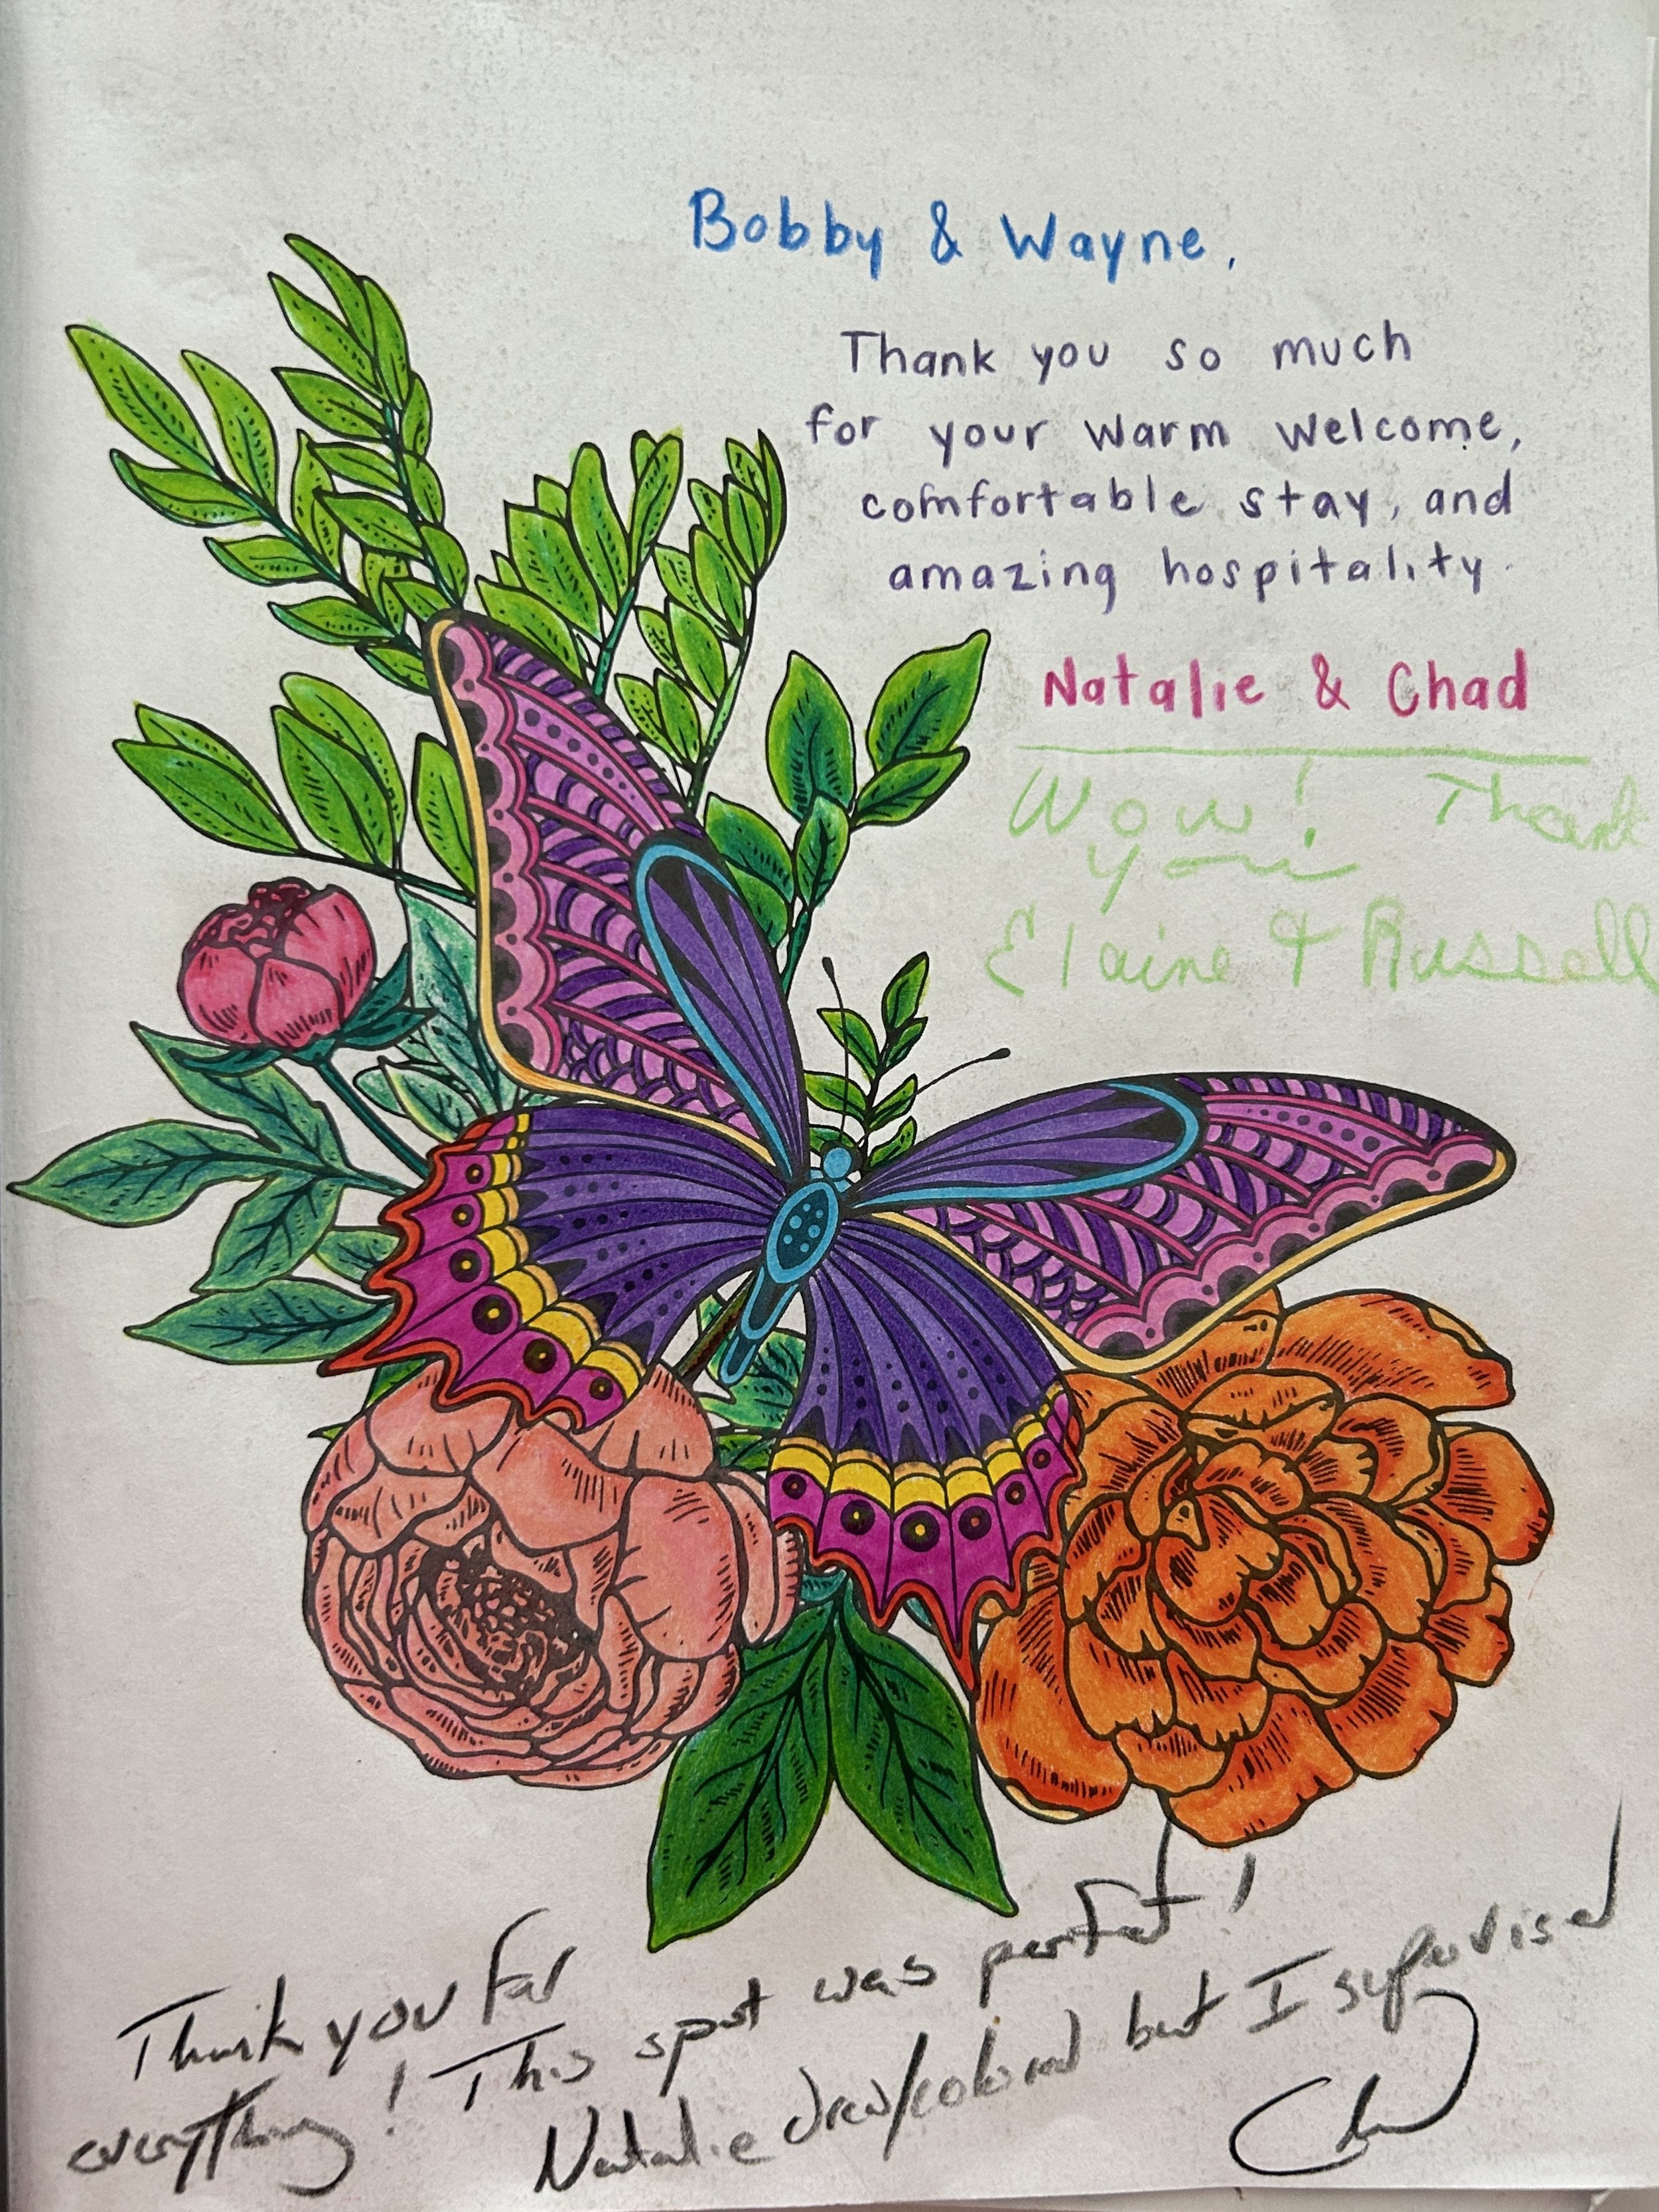 Bobby & Wayne,
Thank you so much
for your warm welcome,
comfortable stay, and
amazing hospitality.
Natalie & Chad
Wow! Thank
you
Elaine & Russell
Thank you for
everything! This spot was perfect!
Natalie drew/colored but I supervised
Chad